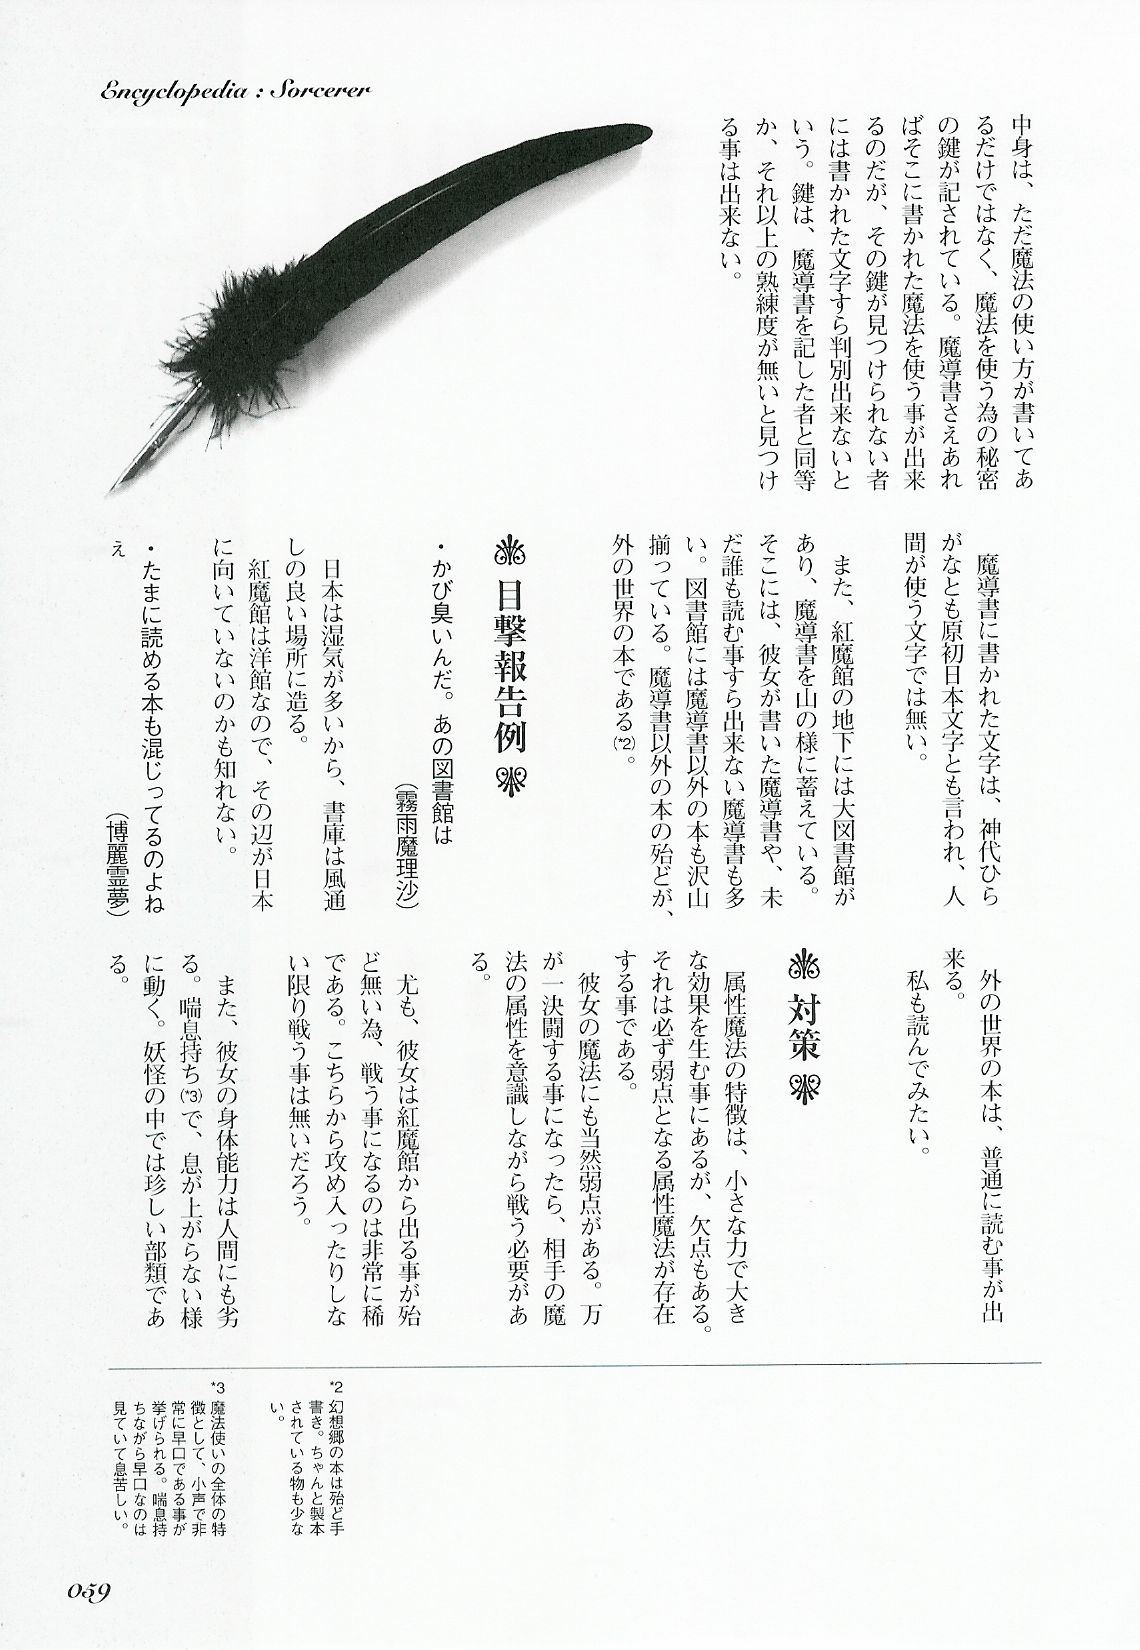 Encyclopedia : Sorcerer
中身は、ただ魔法の使い方が書いてあ
るだけではなく、魔法を使う為の秘密
の鍵が記されている。魔導書さえあれ
ばそこに書かれた魔法を使う事が出来
るのだが、その鍵が見つけられない者
には書かれた文字すら判別出来ないと
いう。鍵は、魔導書を記した者と同等
か、それ以上の熟練度が無いと見つけ
る事は出来ない。
魔導書に書かれた文字は、神代ひら
がなとも原初日本文字とも言われ、人
間が使う文字では無い。
また、紅魔館の地下には大図書館が
あり、魔導書を山の様に蓄えている。
そこには、彼女が書いた魔導書や、未
だ誰も読む事すら出来ない魔導書も多
い。図書館には魔導書以外の本も沢山
揃っている。魔導書以外の本の殆どが、
外の世界の本である(*2)。
目撃報告例
・かび臭いんだ。あの図書館は
(霧雨魔理沙)
日本は湿気が多いから、書庫は風通
しの良い場所に造る。
紅魔館は洋館なので、その辺が日本
に向いていないのかも知れない。
・たまに読める本も混じってるのよね
ぇ
(博麗霊夢)
外の世界の本は、普通に読む事が出
来る。
私も読んでみたい。
対策
属性魔法の特徴は、小さな力で大き
な効果を生む事にあるが、欠点もある。
それは必ず弱点となる属性魔法が存在
する事である。
彼女の魔法にも当然弱点がある。万
が一決闘する事になったら、相手の魔
法の属性を意識しながら戦う必要があ
る。
尤も、彼女は紅魔館から出る事が殆
ど無い為、戦う事になるのは非常に稀
である。こちらから攻め入ったりしな
い限り戦う事は無いだろう。
また、彼女の身体能力は人間にも劣
る。喘息持ち(*3)で、息が上がらない様
に動く。妖怪の中では珍しい部類であ
る。
*2 幻想郷の本は殆ど手
書き。ちゃんと製本
されている物も少な
い。
*3 魔法使いの全体の特
徴として、小声で非
常に早口である事が
挙げられる。喘息持
ちながら早口なのは
見ていて息苦しい。
059